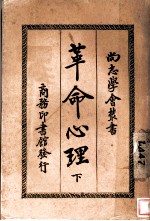 尚志學會叢書
革命心理
下
商務印書館發行